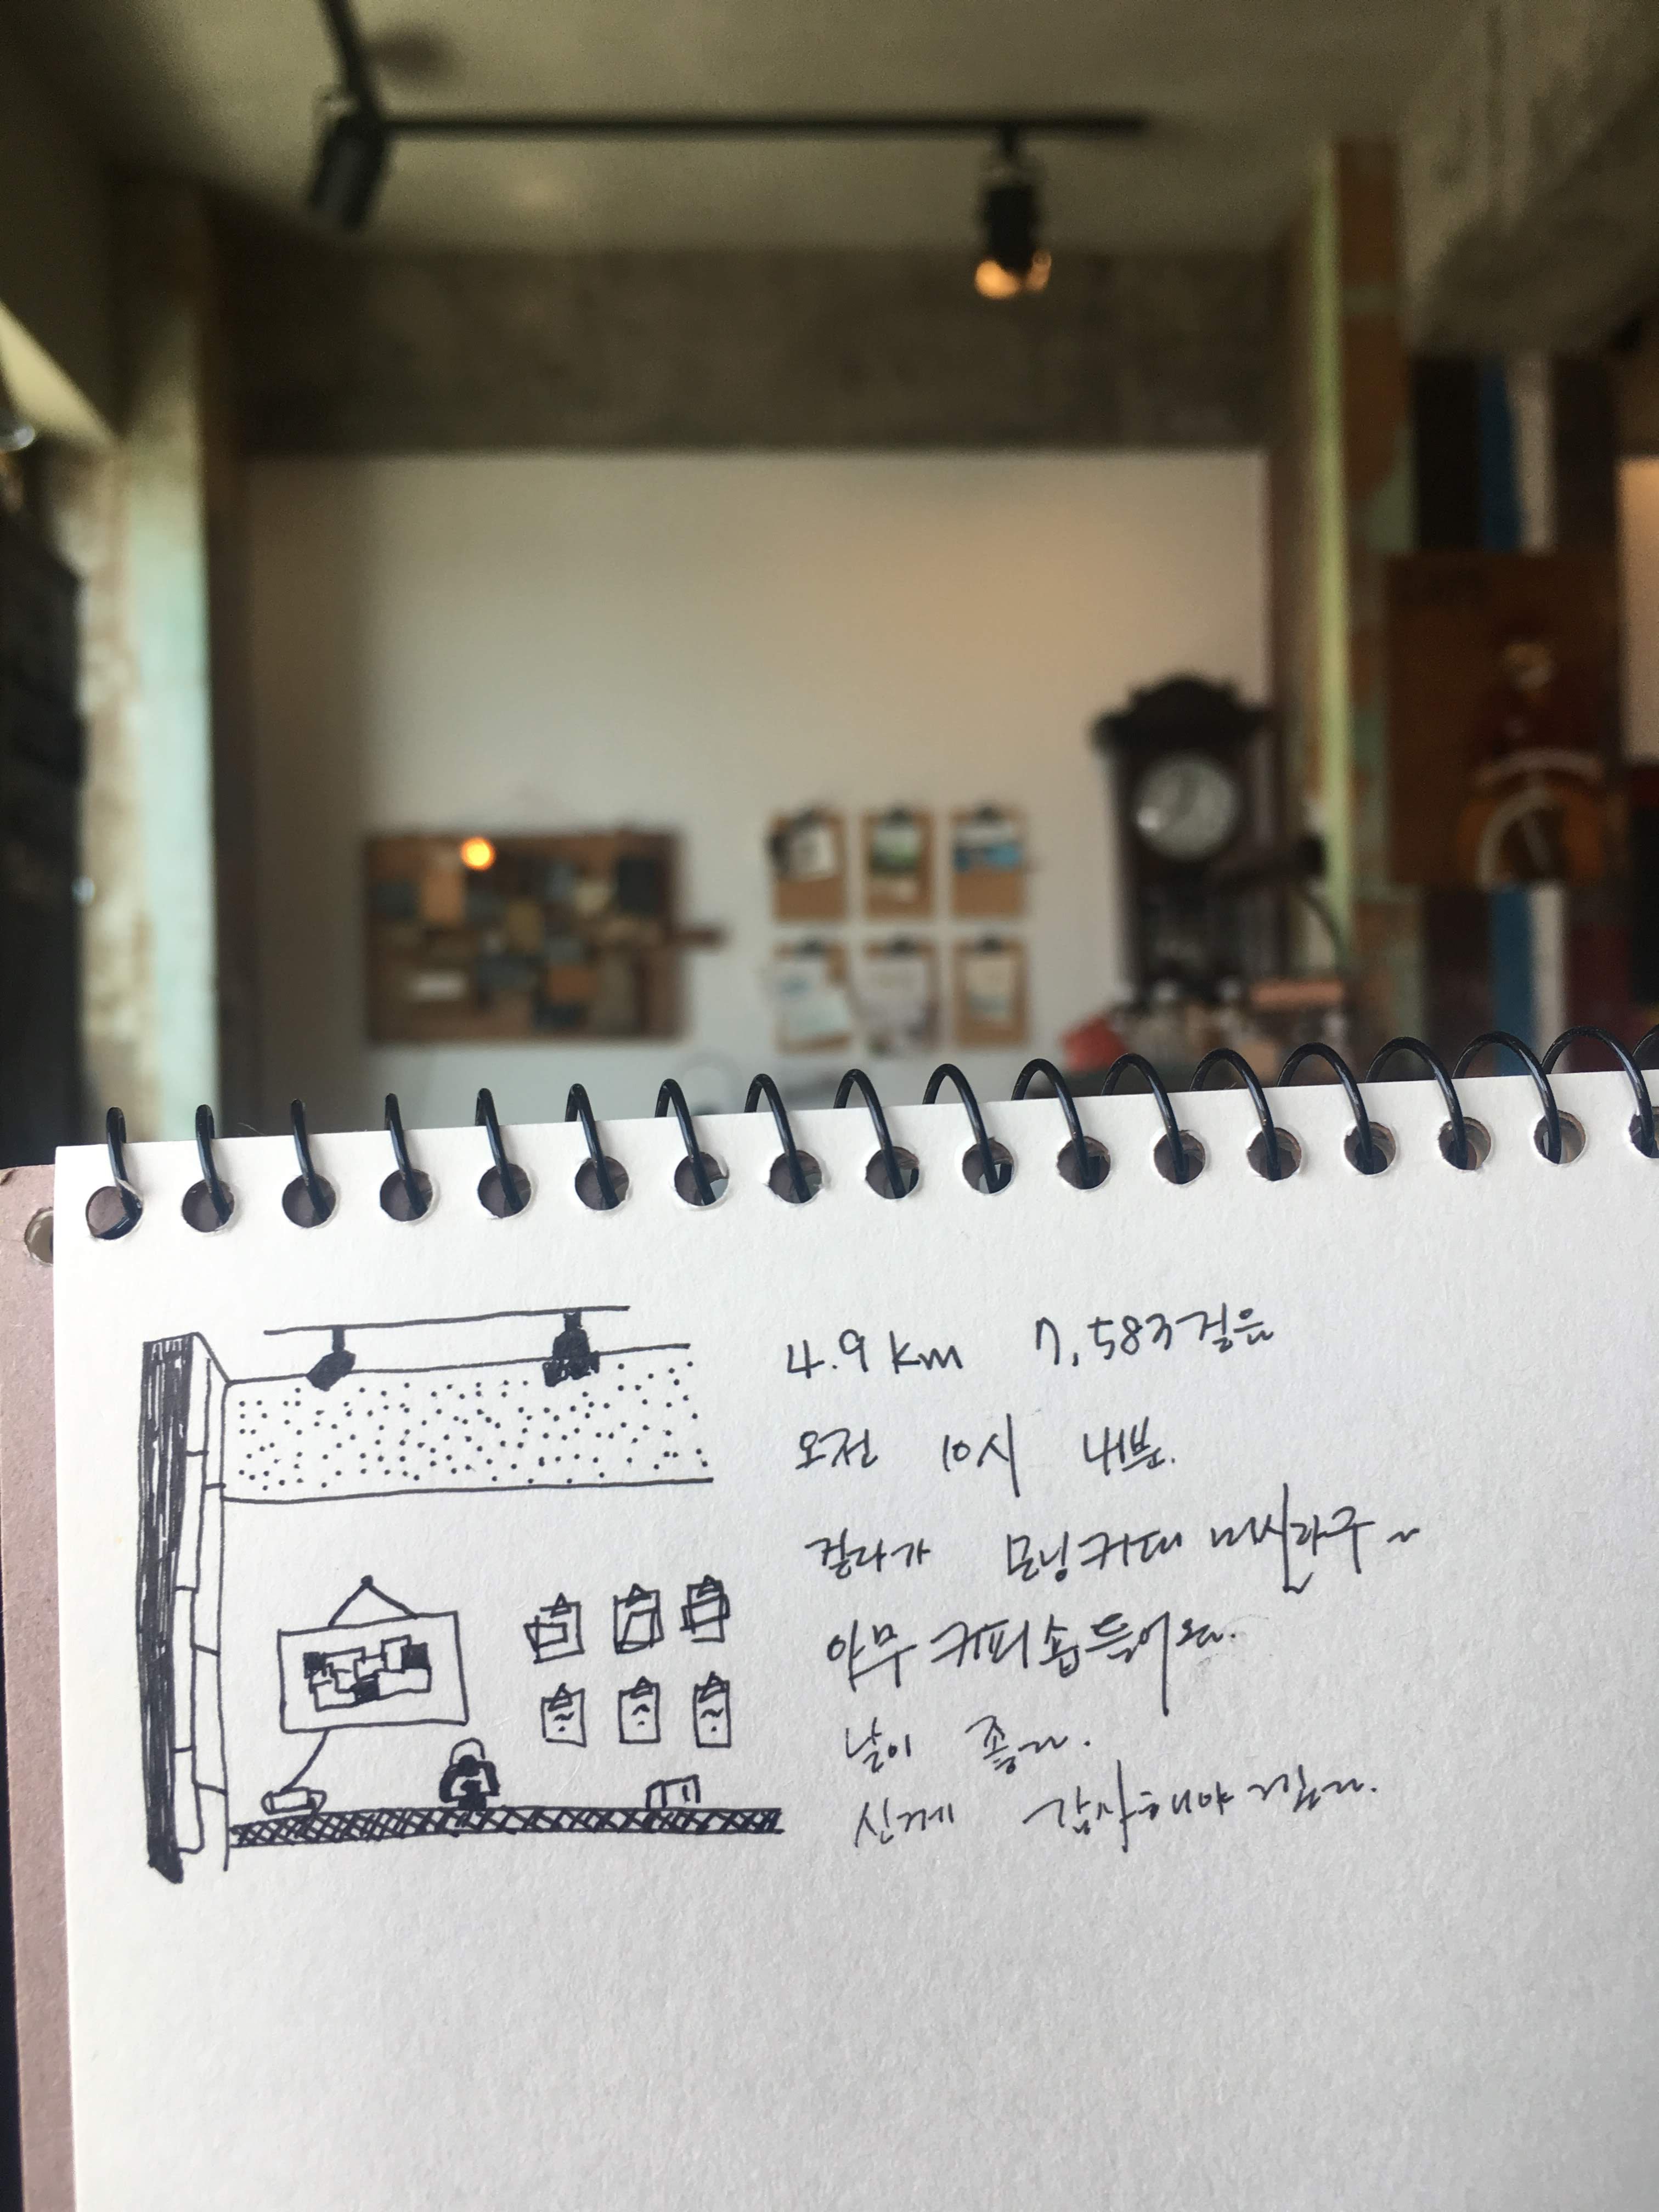 4.9km 7,583걸음
오전 10시 4분.
걷다가 모닝커피 마시라구~
아무 커피숍 들어옴.
날이 좋다.
신께 감사해야겠다.